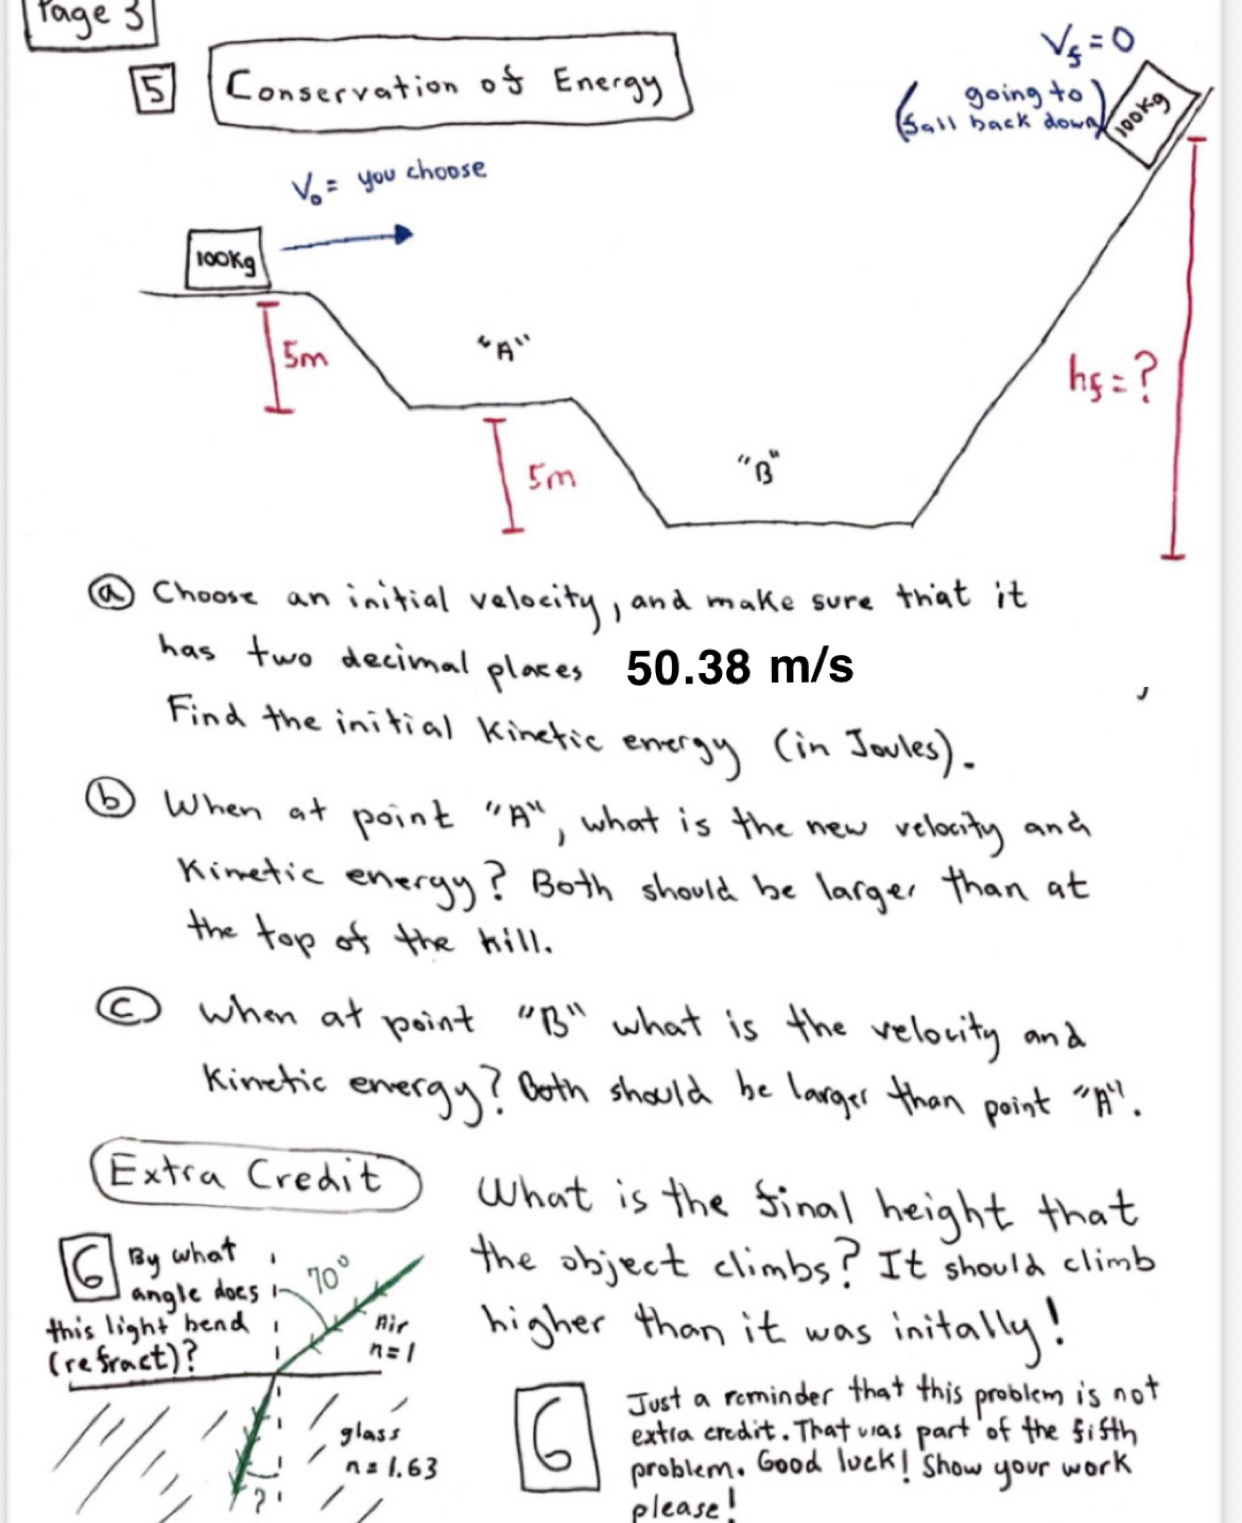 Page 3
5
Conservation of Energy
V₀ = you choose
100Kg
5m
"A"
5m
"B"
V_f = 0
(going to
fall back down)
100Kg
h_f = ?
ⓐ Choose an initial velocity, and make sure that it
has two decimal places 50.38 m/s ,
Find the initial Kinetic energy (in Joules).
ⓑ When at point "A", what is the new velocity and
Kinetic energy? Both should be larger than at
the top of the hill.
ⓒ When at point "B" what is the velocity and
Kinetic energy? Both should be larger than point "A".
Extra Credit
6 By what
angle does
this light bend
(refract)?
70°
Air
n=1
glass
n=1.63
?
What is the final height that
the object climbs? It should climb
higher than it was initally!
6
Just a reminder that this problem is not
extra credit. That was part of the fifth
problem. Good luck! Show your work
please!